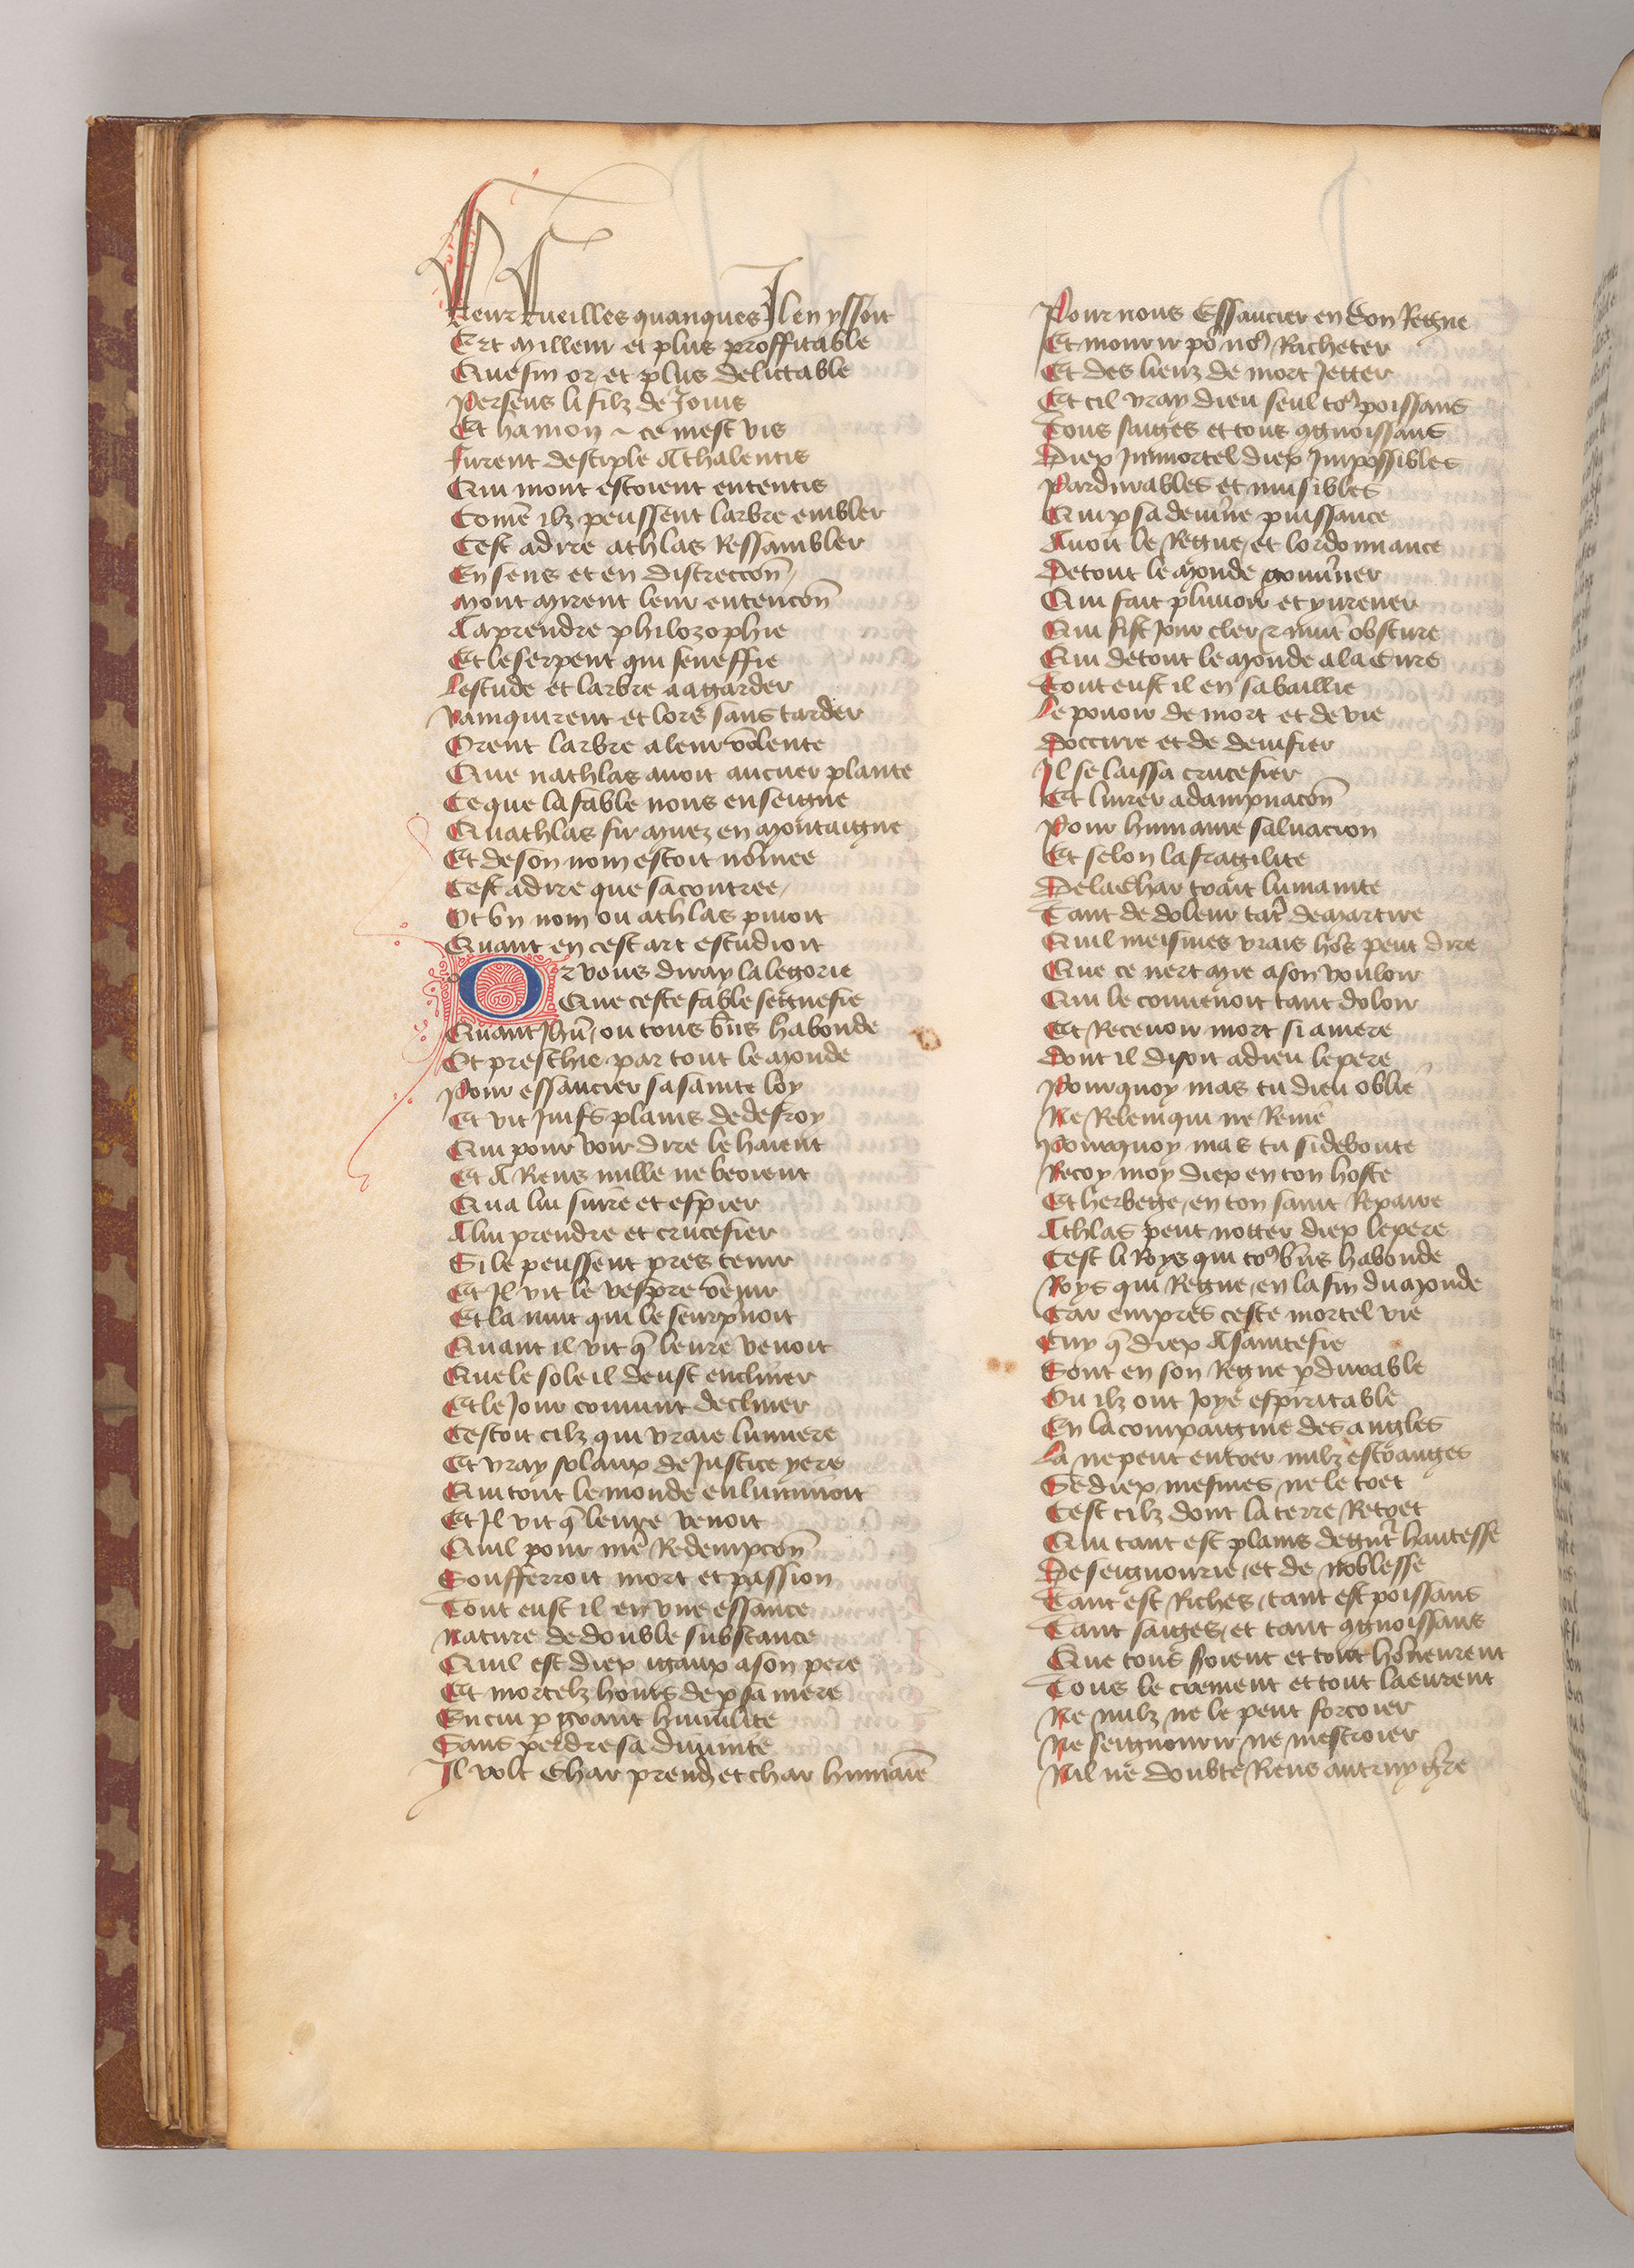 Leur fueilles quanques Il en yssoit
Ert milleur et plus proffitable
Que fin or et plus delictable
Perseus li filz de Jouis
Et hamon ce mest vis
furent desciple Athalentis
Qui mont estoient ententis
Comē ilz peussent larbre embler
Cest adire athlas Ressambler
En sens et en discreccōn
mont mirent leur entencōn
Aaprendre philozophie
Et le serpent qui seneffie
Lestude et larbre a agarder
Vainquirent et lors sans tarder
Orent larbre a leur volente
Que nathlas auoit en cuer plante
Ce que la fable nous enseigne
Quathlas fu muez en montaigne
Et de son nom estoit nōmee
Cest adire que sa contree
Ot vn nom ou athlas pmoit
Quant en cest art estudioit
Or vous diray lalegorie
Que ceste fable segnefie
Quant Jhū ou tous bn̄s habonde
Ot preschie par tout le monde
Pour essaucier sa sainte loy
Et vit Juifs plains de desroy
Qui pour voir dire le haient
Et A Riens nulle ne beoient
Qua lui suire et espier
A lui prendre et crucefier
Si le peussent pres tenir
Et Il vit le vespre venir
Et la nuit qui le seurpnoit
Quant il vit q̄ leure venoit
Que le soleil deust encliner
Et le Jour conuint decliner
Cestoit cilz qui vraie lumiere
Et vray solaux de Justice yere
Qui tout le monde enluminoit
Et Il vit q̄ leure venoit
Quil pour nrē Redempcōn
Soufferroit mort et passion
Tout eust il en vne essance
Nature de double substance
Quil est diex igaux a son pere
Et mortelz homs de p sa mere
En cui p grant humilite
Sans perdre sa diuinite
Il volt Char prendr et char humaīe
Pour nous Essaucier en son Regne
Et mourir po nos Racheter
Et des lieuz de mort Jetter
Et cil vray dieu seul tos poissans
Tous saiges et tous 9gnoissans
Diex Inmortel diex Impossibles
Pardurables et inuisibles
Qui p sa deuine puissance
Auoit le Regne et lordonnance
De tout le monde gouuner
Qui fait plouuoir et yuerner
Qui fist Jour cler 2 nuit obscure
Qui de tout le monde a la Cure
Tout eust il en sa baillie
Le pouoir de mort et de vie
Doccirre et de deuifier
Il se laissa crucefier
Et liurer a dampnacōn
Pour humaine saluacion
Et selon la fragilite
De la Char trait lumanite
Tant de doleur tāt de martire
Quil meismes vrais hōs peut dire
Que ce nert mie a son vouloir
Qui le conuenoit tant doloir
Et Receuoir mort si amere
Dont il disoit a dieu le pere
Pourquoy mas tu dieu oblie
Ne Relenqui ne Renie
Pourquoy mas tu si deboute
Recoy moy diex en ton hoste
Et herbege en ton saint Repaire
Athlas peut notter diex le pere
Cest li Roys qui tos bn̄s habonde
Roys qui Regne en la fin du monde
Car empres ceste mortel vie
Cuy q̄ diex A saintefie
Sont en son Regne pdurable
Ou ilz ont Joye espiritable
En la compaignie des angles
La ne peut entrer nulz estranges
Se diex mesmes ne le troet
Cest cilz dont la terre Retroet
Qui tant est plains de gnt hautesse
De seignourie et de noblesse
Tant est Riches tant est poissans
Tant saiges et tant 9gnoissans
Que tous soient et tout honneurent
Tous le criement et tout laeurent
Ne nulz ne le peut forcoier
Ne seignourir ne mestroier
Nil ne doubte Riens autruy gre